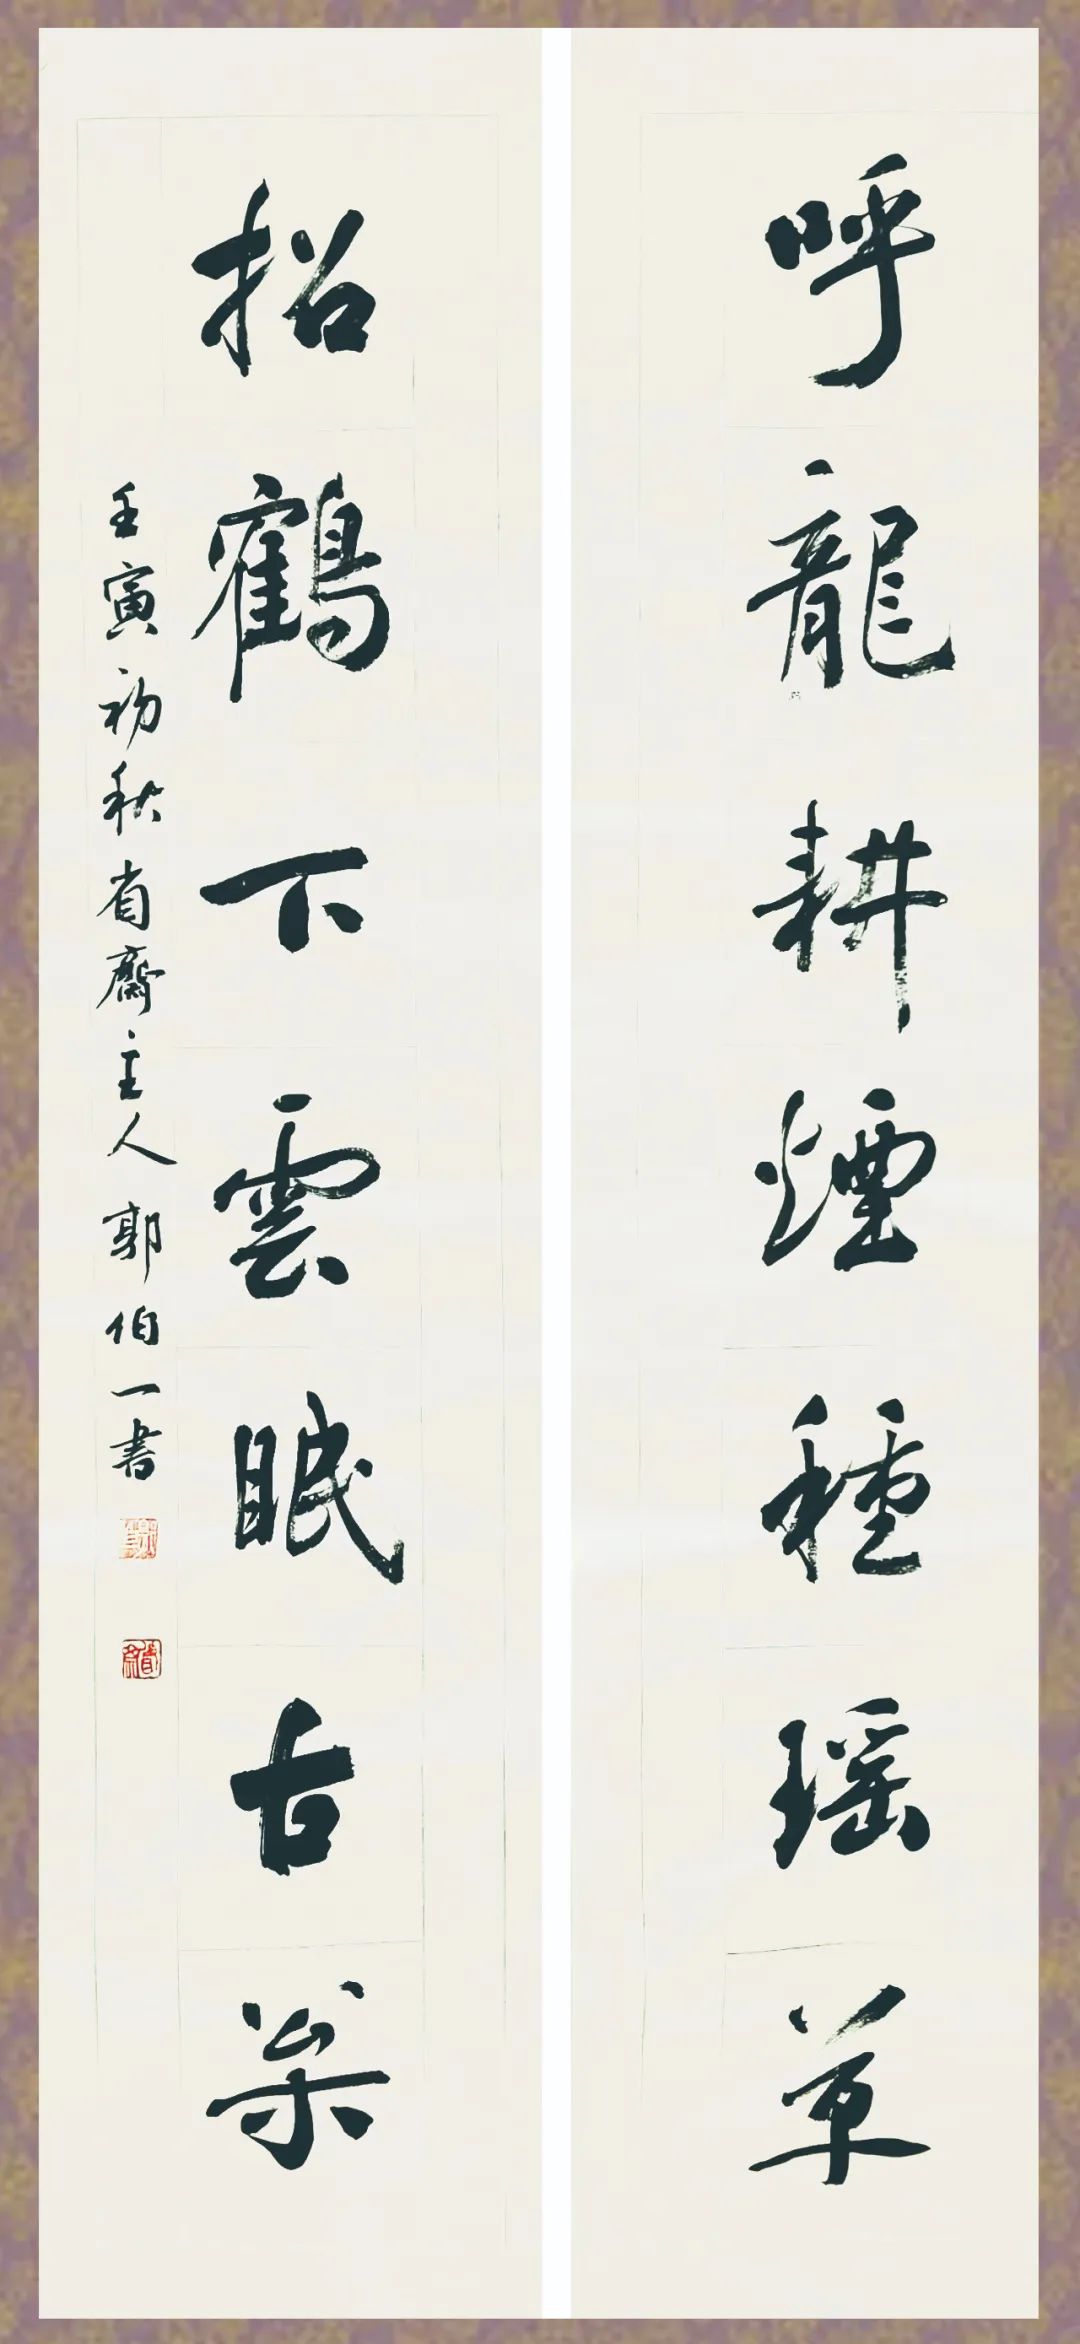 呼龍耕煙種瑶草
招鶴下雲眠古枀
壬寅初秋省齋主人郭伯一書